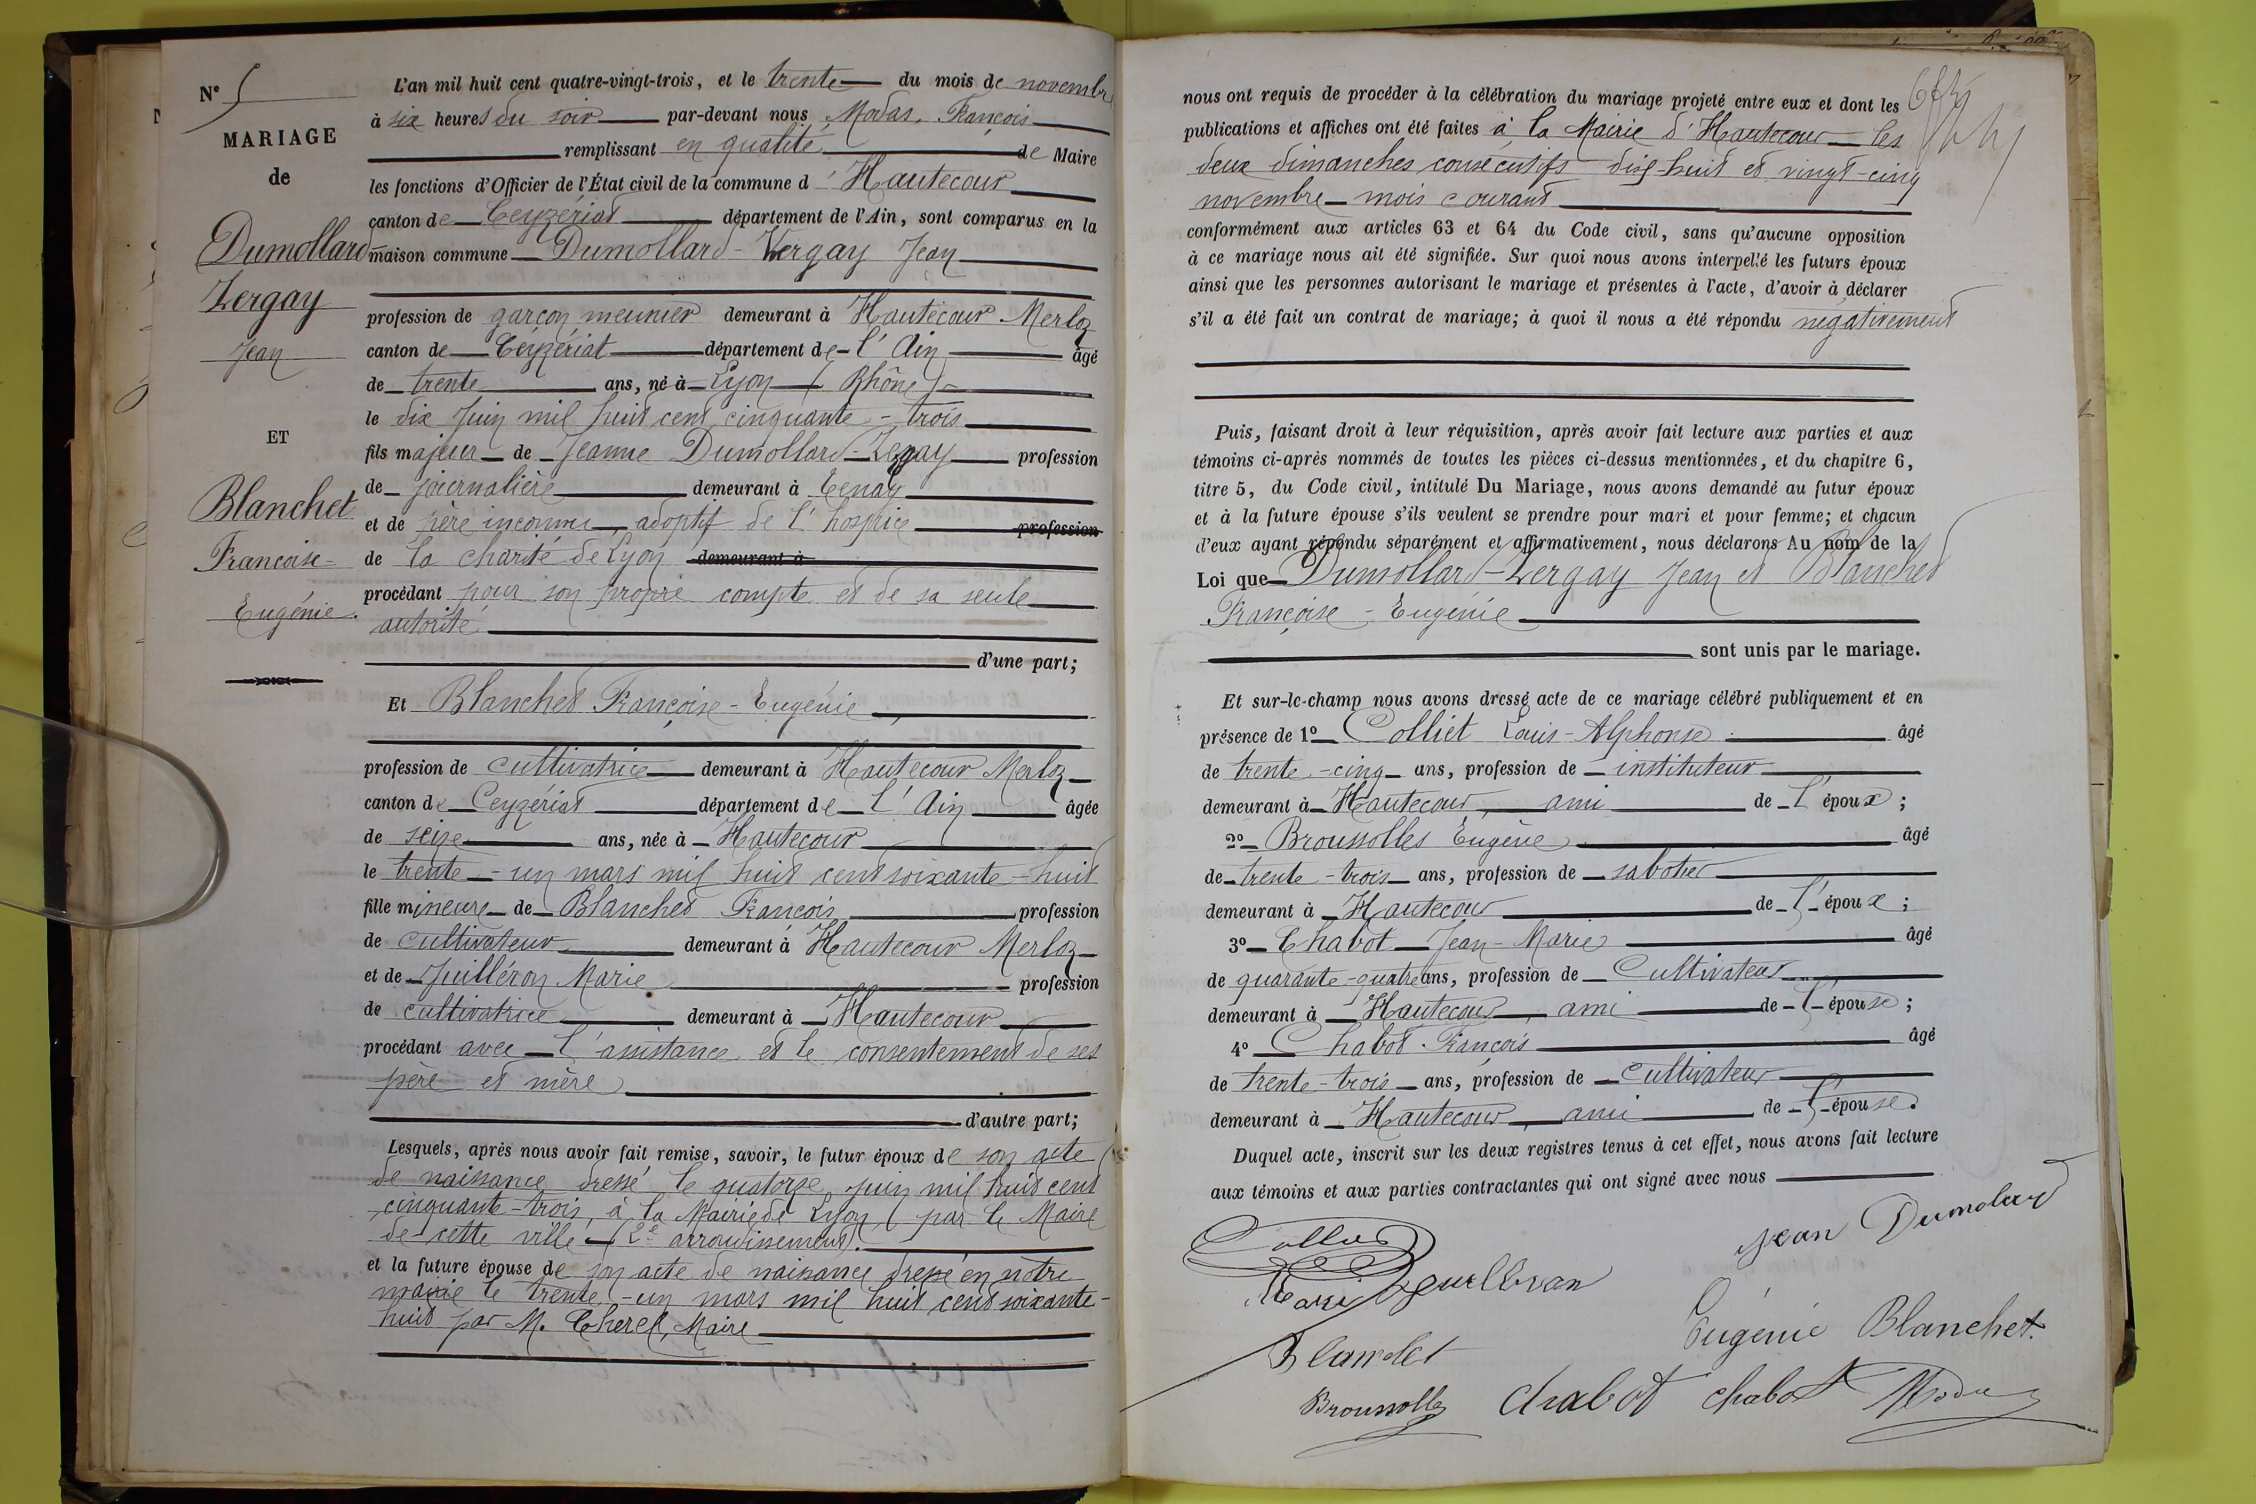 N° 5
MARIAGE
de
Dumollard
Zergay
Jean
ET
Blanchet
Françoise-
Eugénie.
L'an mil huit cent quatre-vingt-trois, et le trente du mois de novembre
à six heures du soir par-devant nous Modas, François
remplissant en qualité de Maire
les fonctions d'Officier de l'État civil de la commune d'Hautecour
canton de Ceyzériat département de l'Ain, sont comparus en la
maison commune Dumollard-Zergay Jean
profession de garçon meunier demeurant à Hautecour Merloz
canton de Ceyzériat département de l'Ain âgé
de trente ans, né à Lyon (Rhône)
le dix Juin mil huit cent cinquante-trois
fils majeur de Jeanne Dumollard-Zergay profession
de journalière demeurant à Tenay
et de père inconnu, adoptif de l'hospice profession
de la charité de Lyon demeurant à
procédant pour son propre compte et de sa seule
autorité
d'une part;
Et Blanchet Françoise-Eugénie,
profession de cultivatrice demeurant à Hautecour Merloz
canton de Ceyzériat département de l'Ain âgée
de seize ans, née à Hautecour
le trente-un mars mil huit cent soixante-huit
fille mineure de Blanchet François profession
de cultivateur demeurant à Hautecour Merloz
et de Juilléron Marie profession
de cultivatrice demeurant à Hautecour
procédant avec l'assistance et le consentement de ses
père et mère
d'autre part;
Lesquels, après nous avoir fait remise, savoir, le futur époux de son acte
de naissance dressé le quatorze juin mil huit cent
cinquante-trois, à la Mairie de Lyon, par le Maire
de cette ville (2e arrondissement).
et la future épouse de son acte de naissance dressé en notre
mairie le trente-un mars mil huit cent soixante-
huit par M. Cherel, Maire
nous ont requis de procéder à la célébration du mariage projeté entre eux et dont les
publications et affiches ont été faites à la Mairie d'Hautecour les
deux dimanches consécutifs dix-huit et vingt-cinq
novembre mois courant
conformément aux articles 63 et 64 du Code civil, sans qu'aucune opposition
à ce mariage nous ait été signifiée. Sur quoi nous avons interpellé les futurs époux
ainsi que les personnes autorisant le mariage et présentes à l'acte, d'avoir à déclarer
s'il a été fait un contrat de mariage; à quoi il nous a été répondu négativement
Puis, faisant droit à leur réquisition, après avoir fait lecture aux parties et aux
témoins ci-après nommés de toutes les pièces ci-dessus mentionnées, et du chapitre 6,
titre 5, du Code civil, intitulé Du Mariage, nous avons demandé au futur époux
et à la future épouse s'ils veulent se prendre pour mari et pour femme; et chacun
d'eux ayant répondu séparément et affirmativement, nous déclarons Au nom de la
Loi que Dumollard-Zergay Jean et Blanchet
Françoise-Eugénie
sont unis par le mariage.
Et sur-le-champ nous avons dressé acte de ce mariage célébré publiquement et en
présence de 1° Colliet Louis-Alphonse âgé
de trente-cinq ans, profession de instituteur
demeurant à Hautecour, ami de l'époux;
2° Broussolles Eugène âgé
de trente-trois ans, profession de sabotier
demeurant à Hautecour de l'époux;
3° Chabot Jean-Marie âgé
de quarante-quatre ans, profession de Cultivateur
demeurant à Hautecour, ami de l'épouse;
4° Chabot François âgé
de trente-trois ans, profession de cultivateur
demeurant à Hautecour, ami de l'épouse.
Duquel acte, inscrit sur les deux registres tenus à cet effet, nous avons fait lecture
aux témoins et aux parties contractantes qui ont signé avec nous
Colliet Jean Dumolard
Marie
Eugénie Blanchet
Blanchet
Broussolle Chabot Chabot Modas